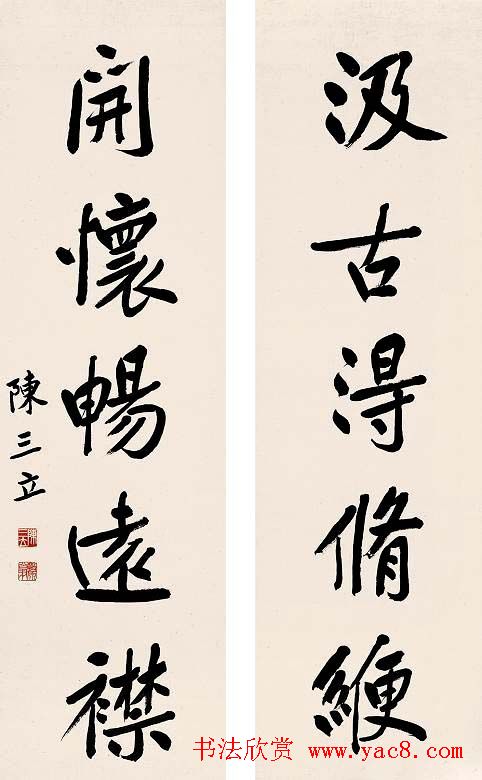 汲古得脩綆
開懷暢遠襟
陳三立
书法欣赏 www.yac8.com